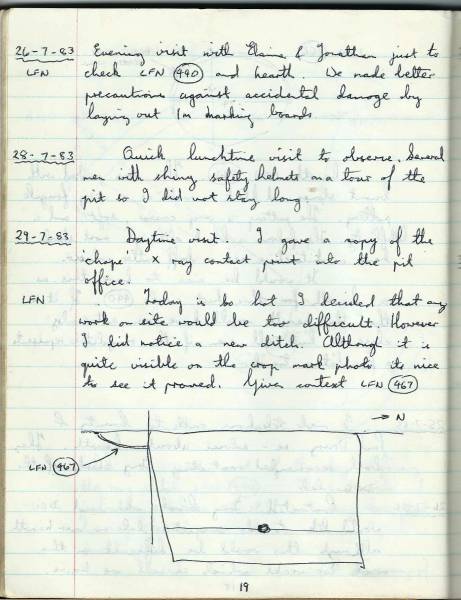 26-7-83 Evening visit with Elaine & Jonathan just to
LFN check LFN 990 and hearth. We made better
precautions against accidental damage by
laying out 1m marking boards
28-7-83 Quick lunchtime visit to observe. Several
men with shiny safety helmets on a tour of the
pit so I did not stay long.
29-7-83 Daytime visit. I gave a copy of the
'chape' x ray contact print into the pit
office.
LFN Today is so hot I decided that any
work on site would be too difficult. However
I did notice a new ditch. Although it is
quite visible on the crop mark photo its nice
to see it proved. Given context LFN 467
→ N
LFN 467
19